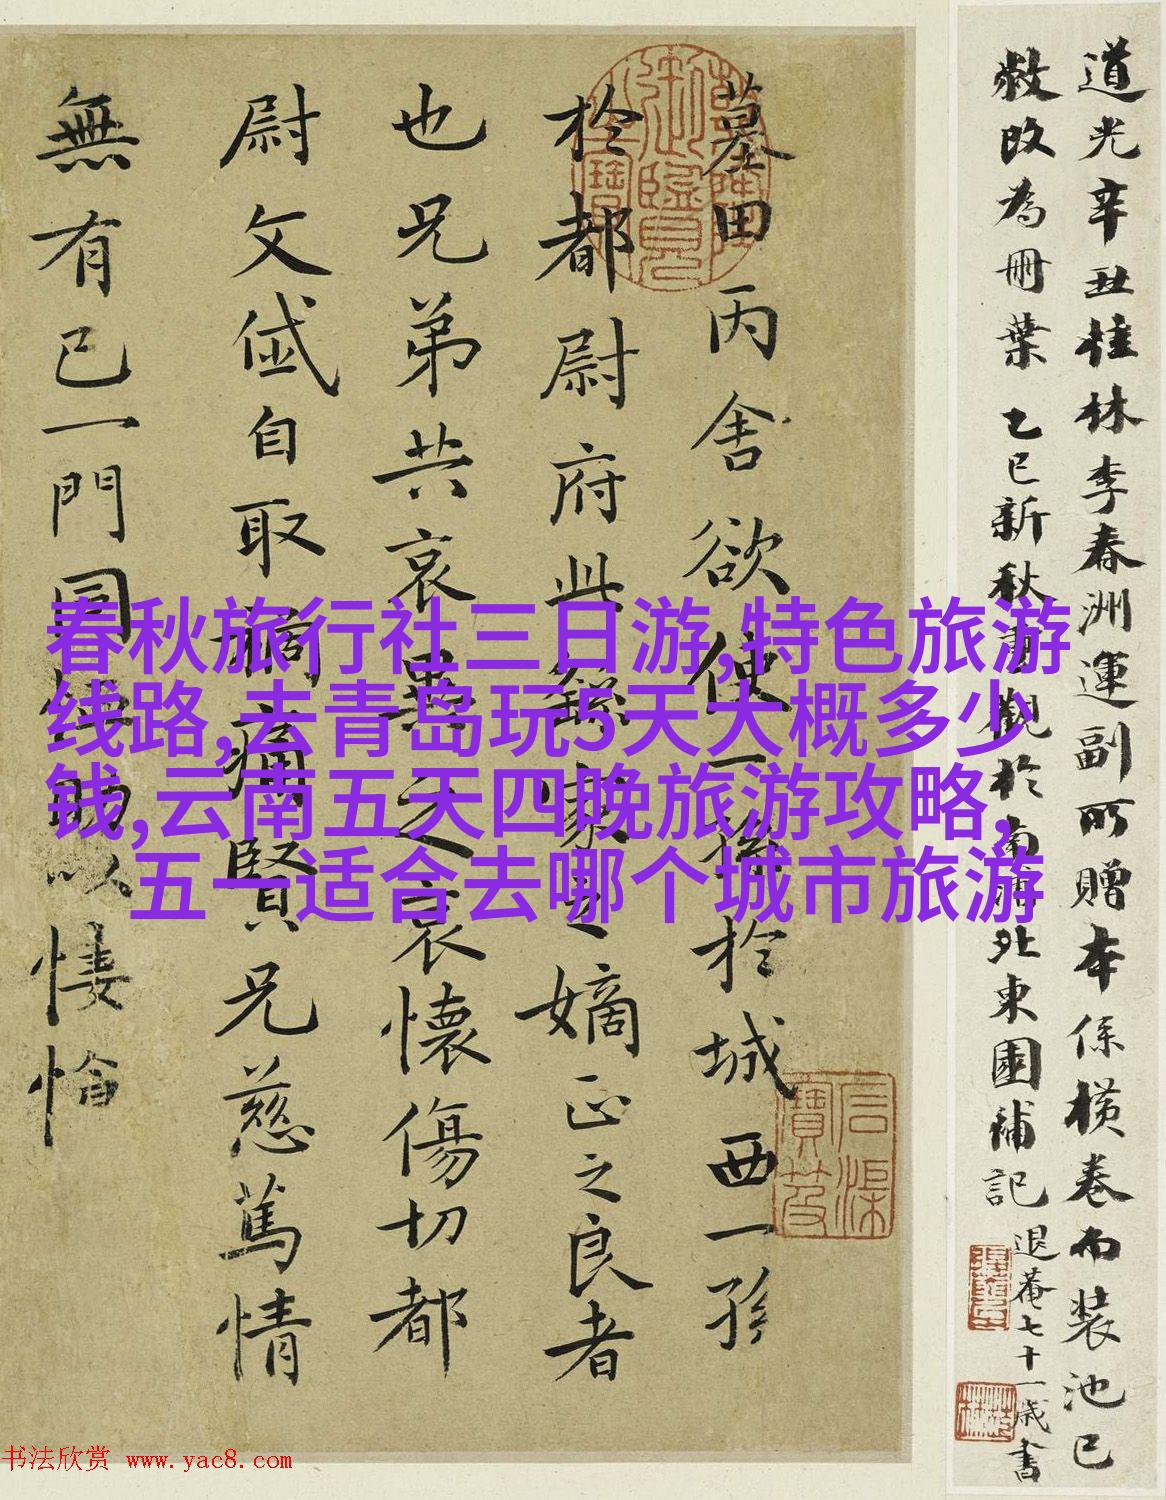 道光辛丑桂林李春洲運副所贈本係橫卷而裝池已
敝改為冊葉 乙巳新秋重觀於南浦北東園補記 退菴七十一歲書
墓田丙舍欲使一孫於城西一孫
於都尉府此繇家之嫡正之良者
也兄弟共哀異之哀懷傷切都
尉文岱自取禍痛賢兄慈篤情
無有已一門同恤助以悽愴
春秋旅行社三日游,特色旅游
线路,去青岛玩5天大概多少
钱,云南五天四晚旅游攻略,
五一适合去哪个城市旅游
书法欣赏 www.yac8.com